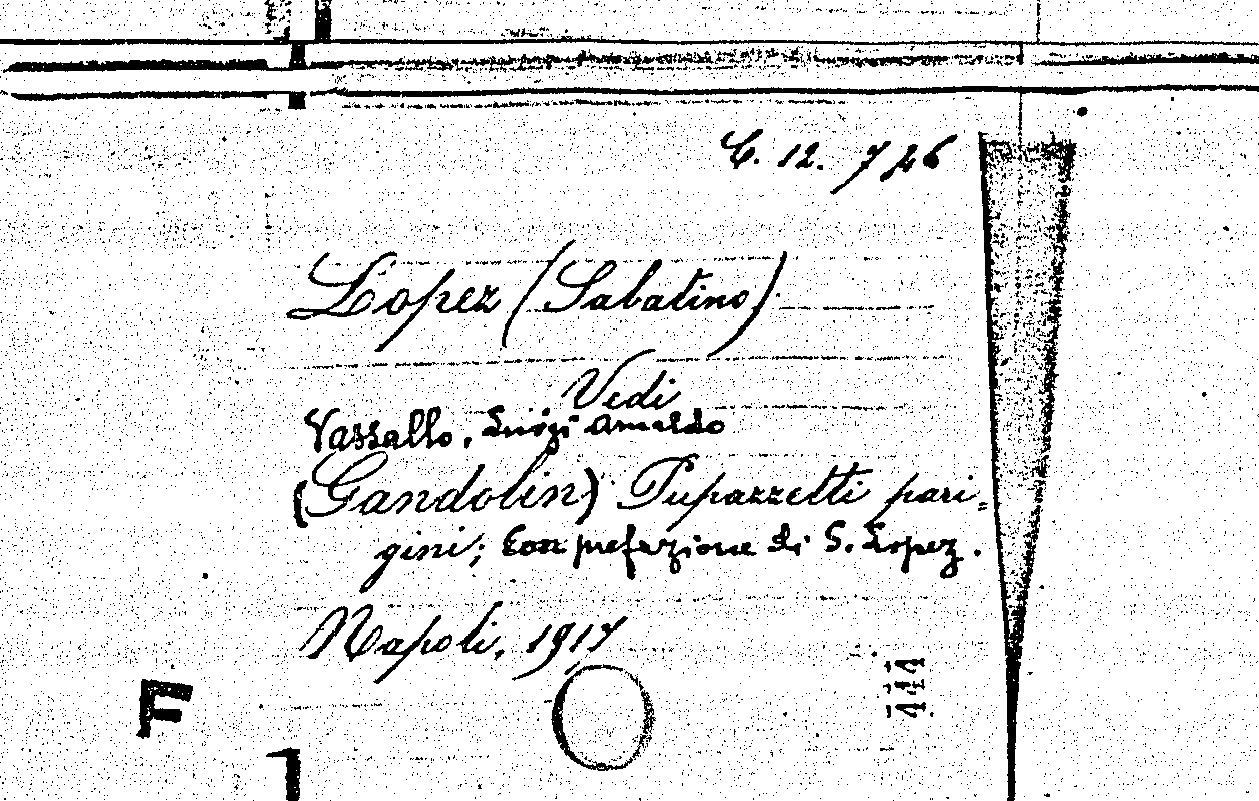 C. 12. 726
Lopez (Sabatino)
Vedi
Vassallo, Luigi Arnaldo
(Gandolin) Pupazzetti pari=
gini; Con prefazione di S. Lopez.
Napoli, 1917
F